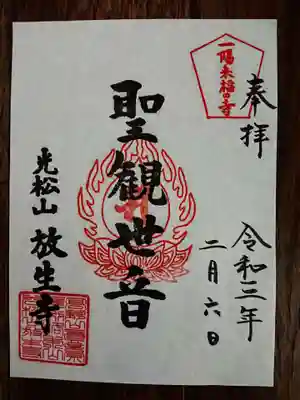 一陽来福の寺
奉拝
令和三年
二月六日
聖観世音
光松山
放生寺